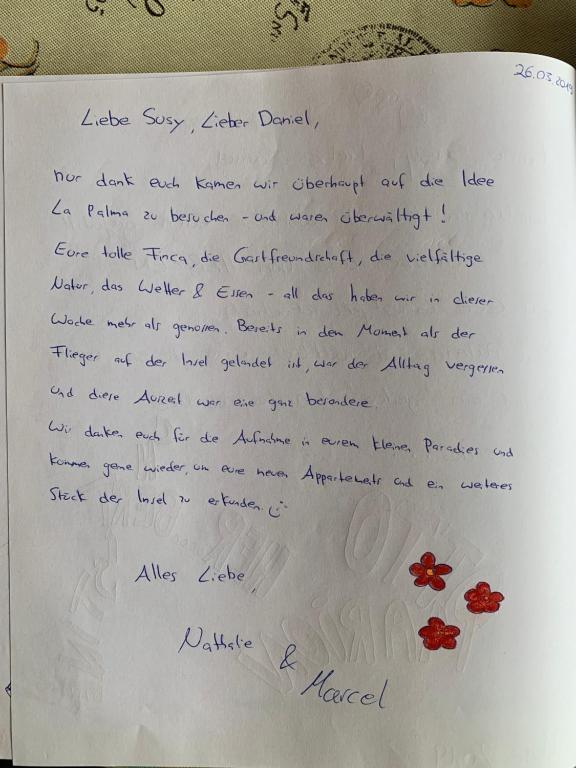 26.03.2019
Liebe Susy, Lieber Daniel,
nur dank euch kamen wir überhaupt auf die Idee
La Palma zu besuchen - und waren überwältigt!
Eure tolle Finca, die Gastfreundschaft, die vielfältige
Natur, das Wetter & Essen - all das haben wir in dieser
Woche mehr als genossen. Bereits in dem Moment als der
Flieger auf der Insel gelandet ist, war der Alltag vergessen
und diese Auszeit war eine ganz besondere.
Wir danken euch für die Aufnahme in eurem kleinen Paradies und
kommen gerne wieder, um eure neuen Appartements und ein weiteres
Stück der Insel zu erkunden.
Alles Liebe,
Nathalie
&
Marcel